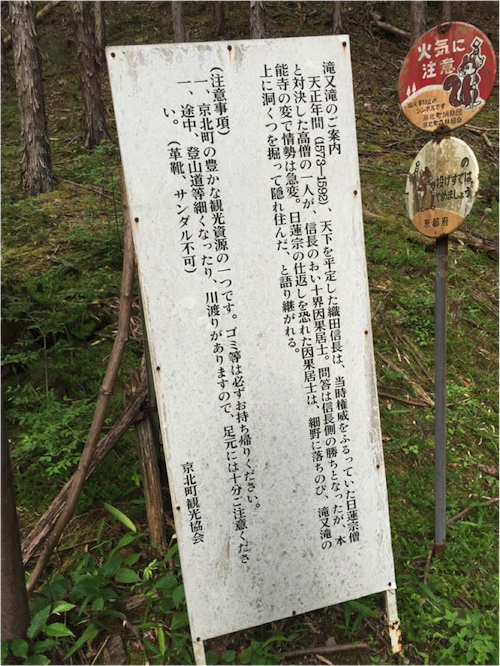 滝又滝のご案内
天正年間（1573―1592）、天下を平定した織田信長は、当時権威をふるっていた日蓮宗僧
と対決した高僧の一人が、信長のおい十界因果居士。問答は信長側の勝ちとなったが、本
能寺の変で情勢は急変。日蓮宗の仕返しを恐れた因果居士は、細野に落ちのび、滝又滝の
上に洞くつを掘って隠れ住んだ、と語り継がれる。
（注意事項）
一、京北町の豊かな観光資源の一つです。ゴミ等は必ずお持ち帰りください。
一、途中、登山道等細くなったり、川渡りがありますので、足元には十分ご注意くださ
い。（革靴、サンダル不可）
京北町観光協会
火気に
注意
シンボルです
京北町消防団
京北町森林組合
の
投げすては
やめましょう
京都府